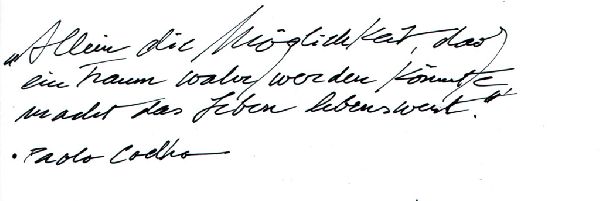 „Allein die Möglichkeit, das
ein Traum wahr werden könnte
macht das Leben lebenswert."
· Paolo Coelho